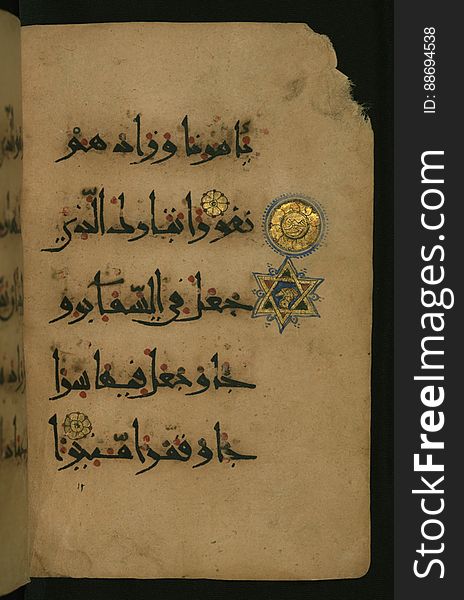 تأمرنا وزادهم
نفورا تبارك الّذي
جعل في السّماء برو
جا وجعل فيها سرا
جا وقمرا مّنيرا
ID: 88694538
StockFreeImages.com